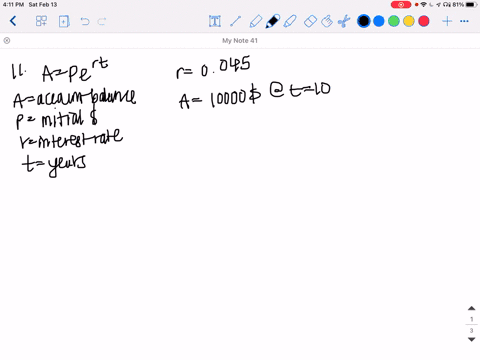 4:11 PM Sat Feb 13
81%
My Note 41
11. A=Pe^rt
A=account balance
P=initial $
r=interest rate
t=years
r=0.045
A=10000$ @ t=10
1
3